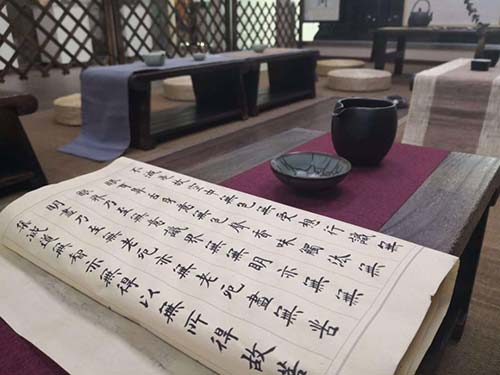 不減是故空中無色無受想行識無
眼耳鼻舌身意無色聲香味觸法無
眼界乃至無意識界無無明亦無無
明盡乃至無老死亦無老死盡無苦
集滅道無智亦無得以無所得故菩